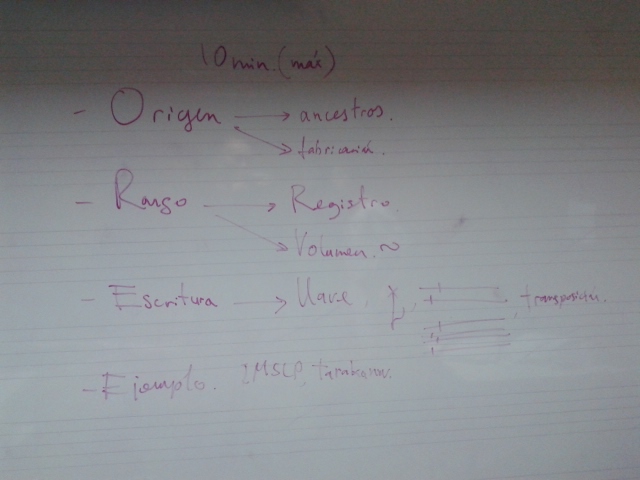 10 min. (más)
- Origen → ancestros.
→ fabricación.
- Rango → Registro.
→ Volumen. ~
- Escritura → Llave, transposición.
- Ejemplo. IMSLP, tarakanov.